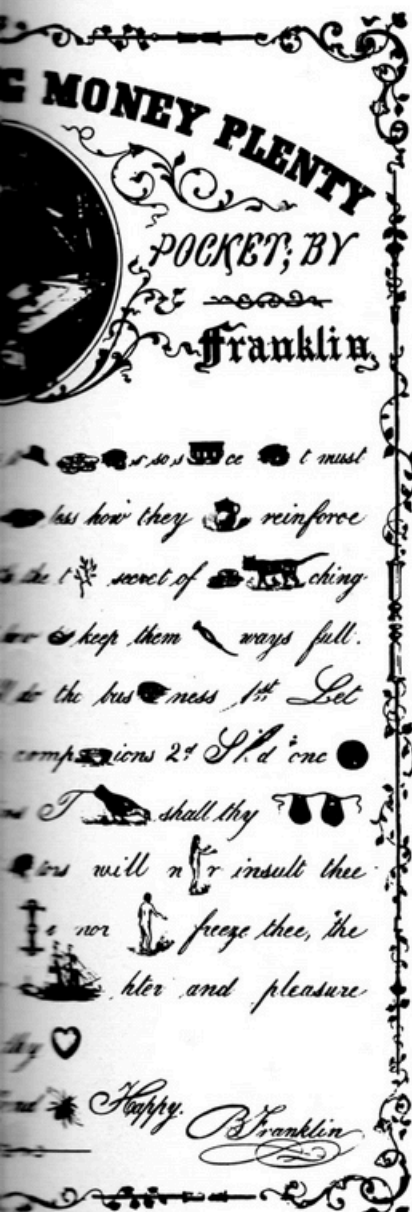 G MONEY PLENTY
POCKET; BY
Franklin,
so s ce t must
less how they reinforce
the t secret of ching
keep them ways full.
do the bus ness 1st Let
comp ions 2d Sp d one
T shall thy
tors will n r insult thee
nor freeze thee, the
hter and pleasure
thy
Happy.
B Franklin